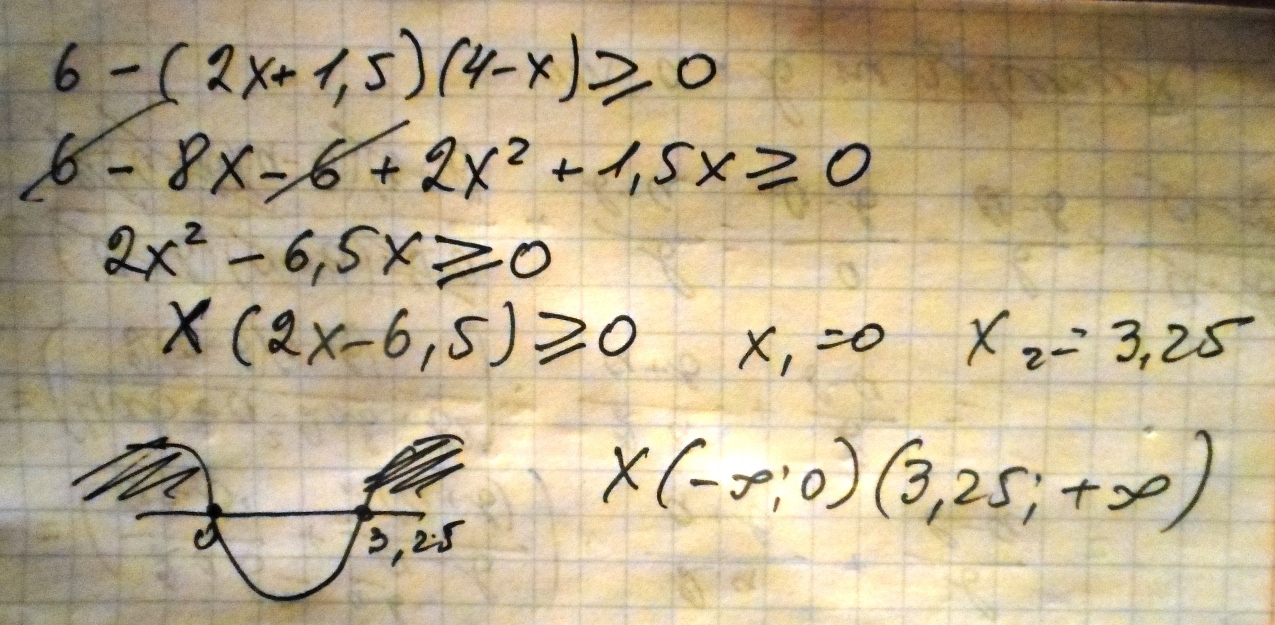 6 - (2x+1,5)(4-x) ⩾ 0
6 - 8x - 6 + 2x² + 1,5x ⩾ 0
2x² - 6,5x ⩾ 0
x(2x-6,5) ⩾ 0 x₁=0 x₂=3,25
x(-∞;0)(3,25;+∞)
0 3,25